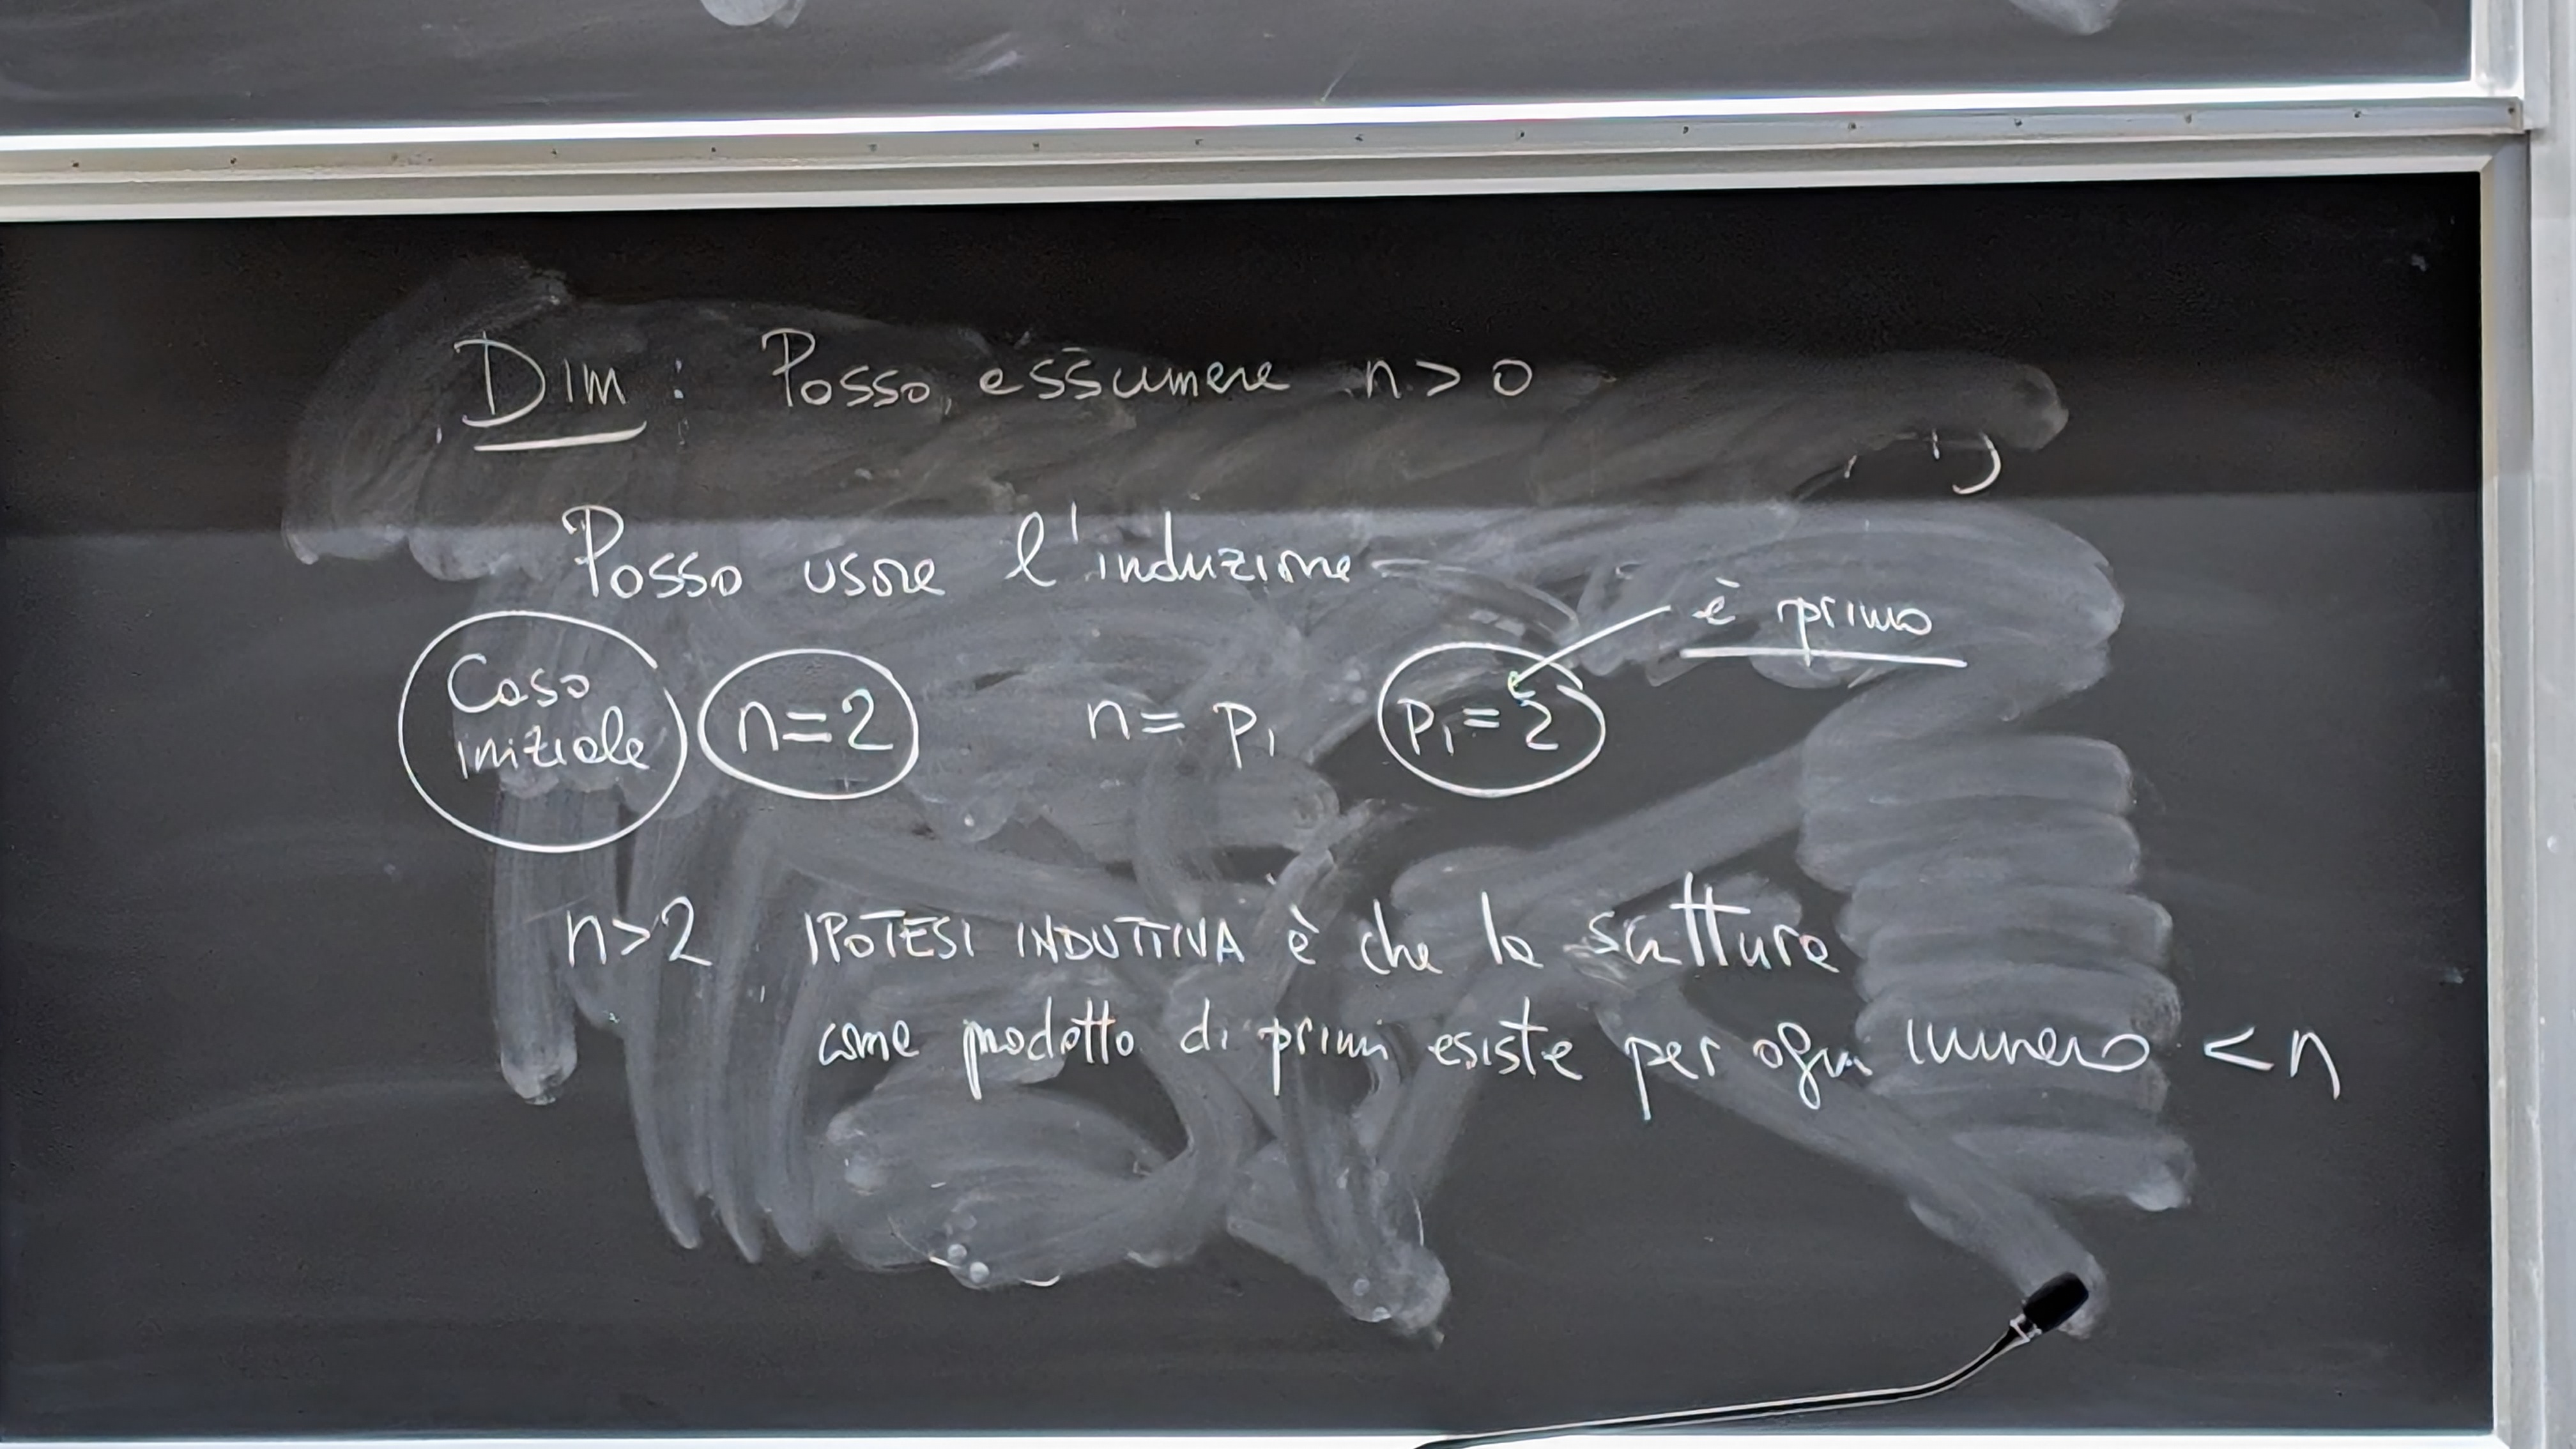 DIM: Posso assumere n > 0
Posso usare l'induzione
è primo
Caso
iniziale
n=2 n = p₁ p₁ = 2
n>2 IPOTESI INDUTTIVA è che la scrittura
come prodotto di primi esiste per ogni numero < n